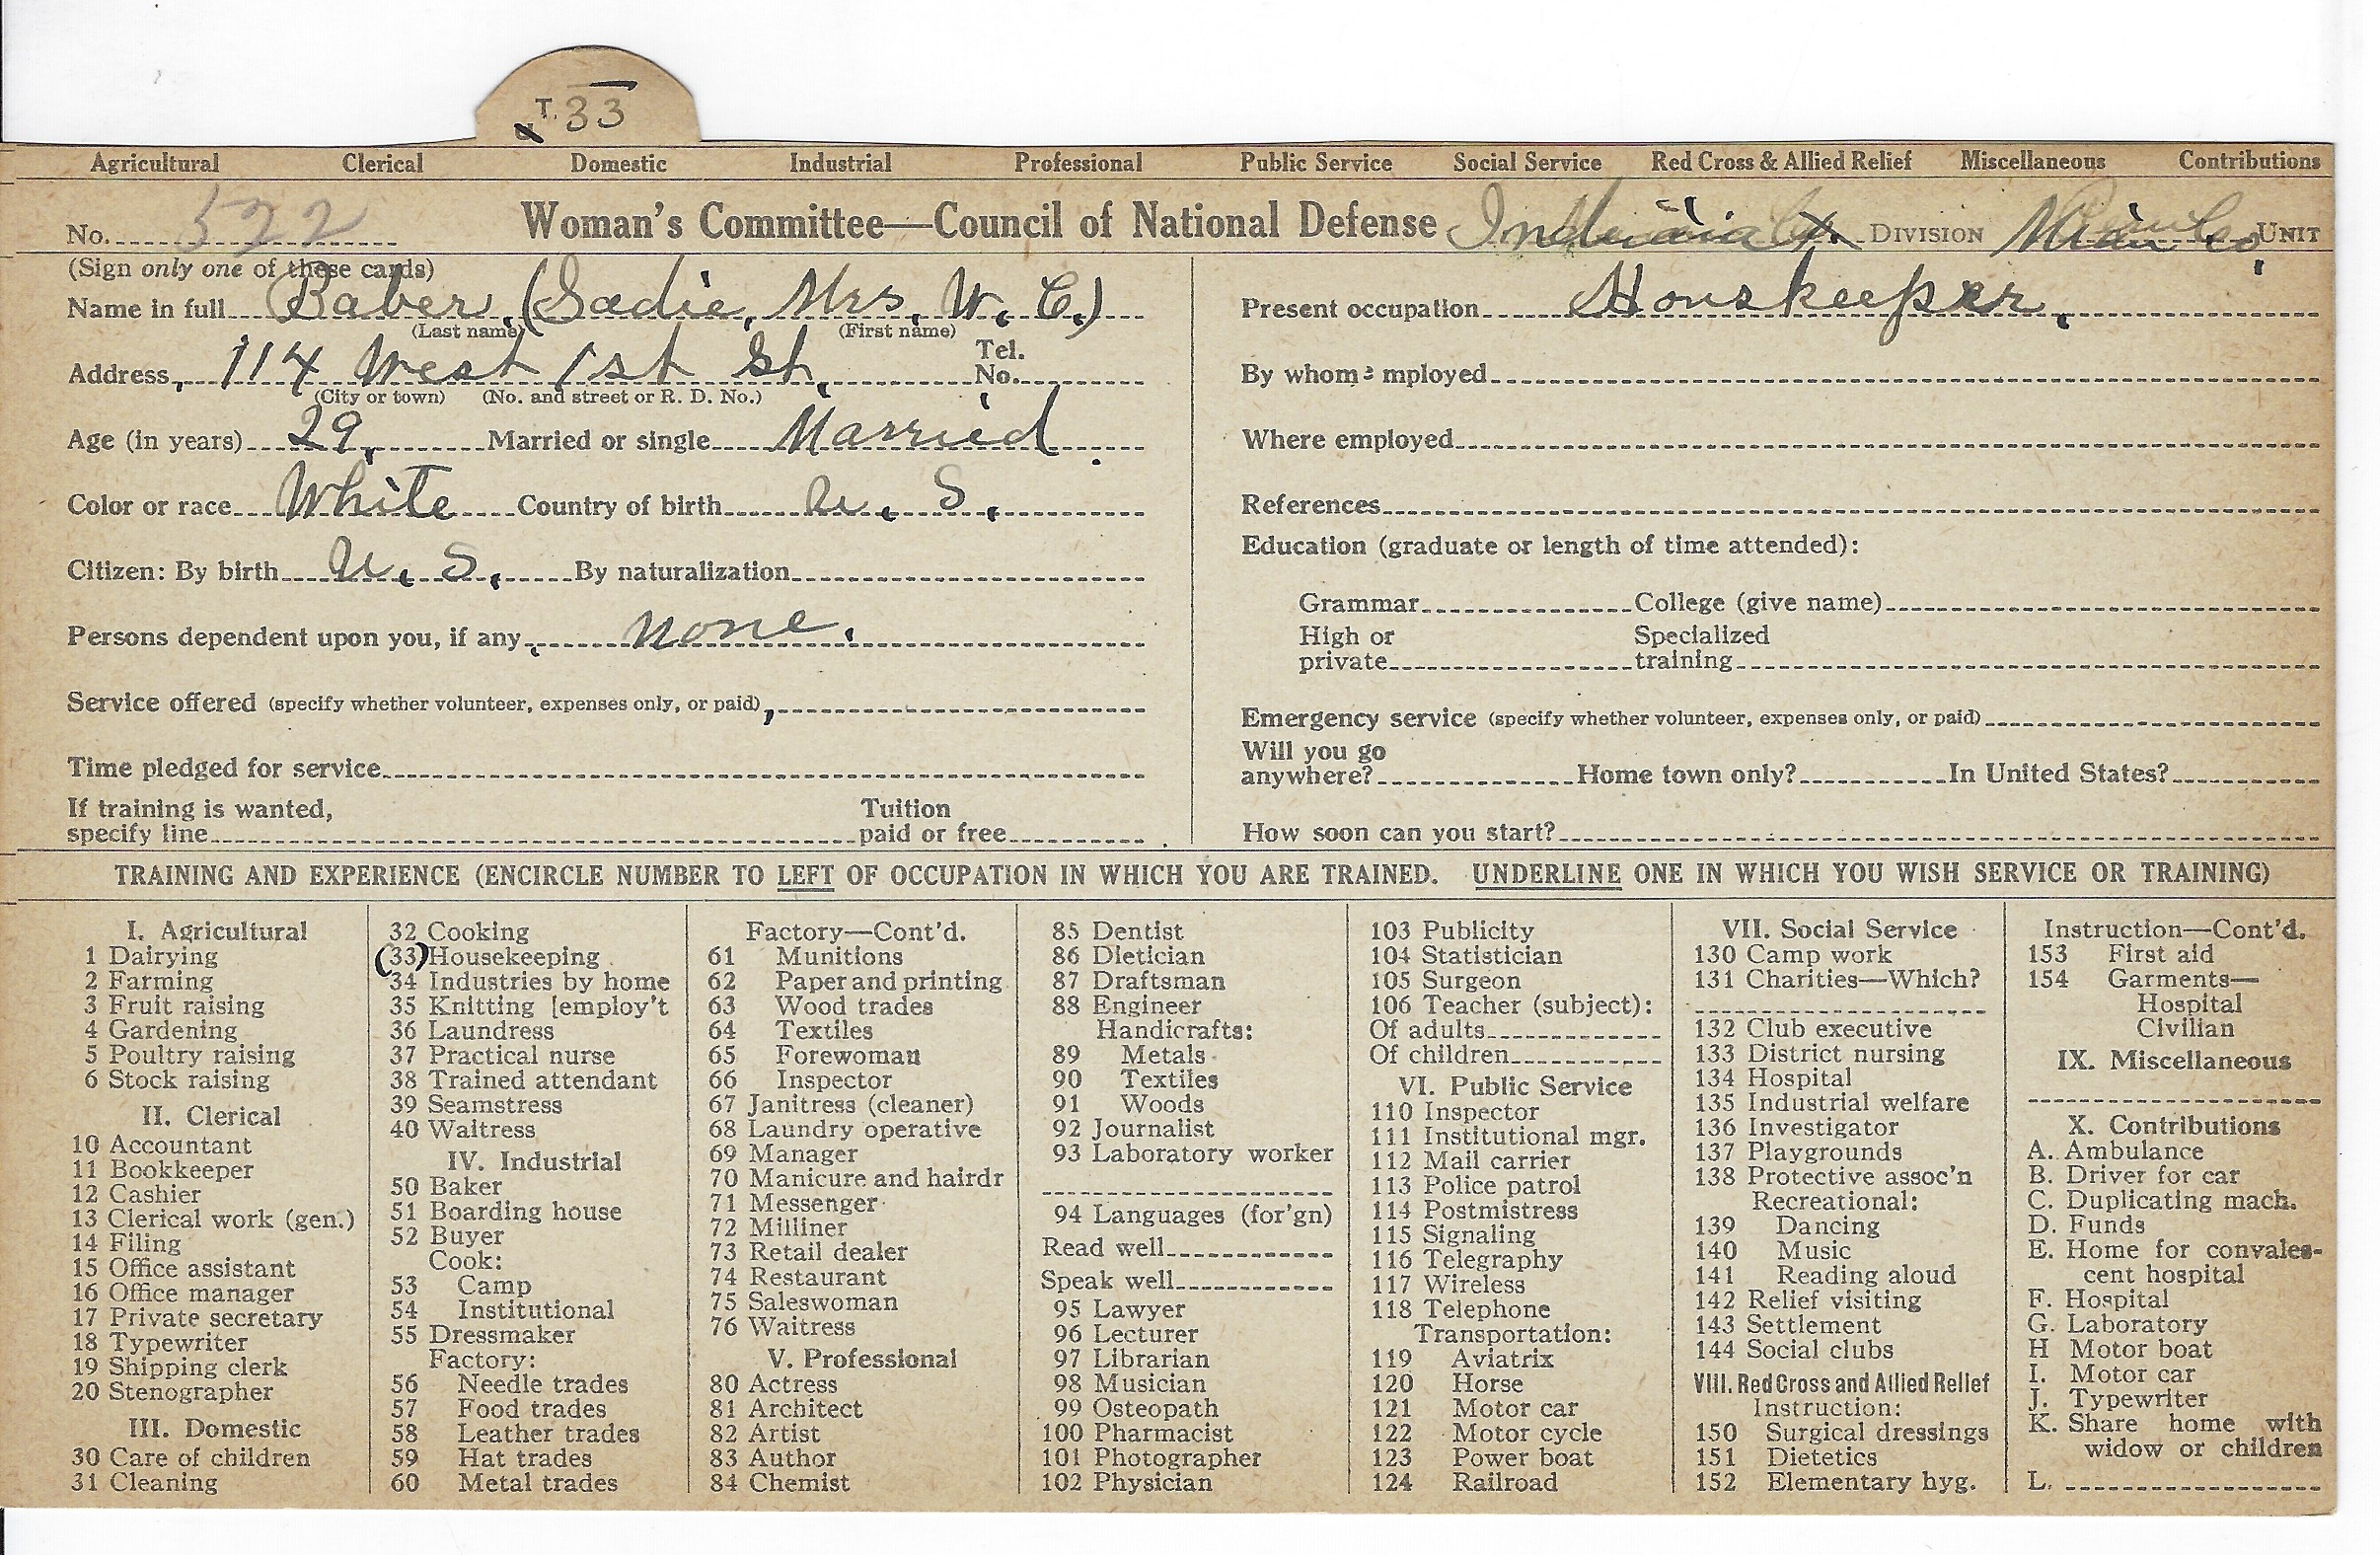 T. 33
Agricultural Clerical Domestic Industrial Professional Public Service Social Service Red Cross & Allied Relief Miscellaneous Contributions
No. 522 Woman's Committee—Council of National Defense Indiana DIVISION UNIT
(Sign only one of these cards)
Name in full Baber, (Sadie, Mrs. W. C.)
(Last name) (First name)
Address, 114 West 1st St. Tel. No.
(City or town) (No. and street or R. D. No.)
Age (in years) 29, Married or single Married.
Color or race White Country of birth U. S.
Citizen: By birth U. S. By naturalization
Persons dependent upon you, if any, none.
Service offered (specify whether volunteer, expenses only, or paid),
Time pledged for service
If training is wanted,
specify line Tuition paid or free
Present occupation Houskeeper.
By whom employed
Where employed
References
Education (graduate or length of time attended):
Grammar College (give name)
High or private Specialized training
Emergency service (specify whether volunteer, expenses only, or paid)
Will you go
anywhere? Home town only? In United States?
How soon can you start?
TRAINING AND EXPERIENCE (ENCIRCLE NUMBER TO LEFT OF OCCUPATION IN WHICH YOU ARE TRAINED. UNDERLINE ONE IN WHICH YOU WISH SERVICE OR TRAINING)
I. Agricultural
1 Dairying
2 Farming
3 Fruit raising
4 Gardening
5 Poultry raising
6 Stock raising
II. Clerical
10 Accountant
11 Bookkeeper
12 Cashier
13 Clerical work (gen.)
14 Filing
15 Office assistant
16 Office manager
17 Private secretary
18 Typewriter
19 Shipping clerk
20 Stenographer
III. Domestic
30 Care of children
31 Cleaning
32 Cooking
(33) Housekeeping
34 Industries by home
35 Knitting [employ't
36 Laundress
37 Practical nurse
38 Trained attendant
39 Seamstress
40 Waitress
IV. Industrial
50 Baker
51 Boarding house
52 Buyer
Cook:
53 Camp
54 Institutional
55 Dressmaker
Factory:
56 Needle trades
57 Food trades
58 Leather trades
59 Hat trades
60 Metal trades
Factory—Cont'd.
61 Munitions
62 Paper and printing
63 Wood trades
64 Textiles
65 Forewoman
66 Inspector
67 Janitress (cleaner)
68 Laundry operative
69 Manager
70 Manicure and hairdr
71 Messenger
72 Milliner
73 Retail dealer
74 Restaurant
75 Saleswoman
76 Waitress
V. Professional
80 Actress
81 Architect
82 Artist
83 Author
84 Chemist
85 Dentist
86 Dietician
87 Draftsman
88 Engineer
Handicrafts:
89 Metals
90 Textiles
91 Woods
92 Journalist
93 Laboratory worker
94 Languages (for'gn)
Read well
Speak well
95 Lawyer
96 Lecturer
97 Librarian
98 Musician
99 Osteopath
100 Pharmacist
101 Photographer
102 Physician
103 Publicity
104 Statistician
105 Surgeon
106 Teacher (subject):
Of adults
Of children
VI. Public Service
110 Inspector
111 Institutional mgr.
112 Mail carrier
113 Police patrol
114 Postmistress
115 Signaling
116 Telegraphy
117 Wireless
118 Telephone
Transportation:
119 Aviatrix
120 Horse
121 Motor car
122 Motor cycle
123 Power boat
124 Railroad
VII. Social Service
130 Camp work
131 Charities—Which?
132 Club executive
133 District nursing
134 Hospital
135 Industrial welfare
136 Investigator
137 Playgrounds
138 Protective assoc'n
Recreational:
139 Dancing
140 Music
141 Reading aloud
142 Relief visiting
143 Settlement
144 Social clubs
VIII. Red Cross and Allied Relief
Instruction:
150 Surgical dressings
151 Dietetics
152 Elementary hyg.
Instruction—Cont'd.
153 First aid
154 Garments—
Hospital
Civilian
IX. Miscellaneous
X. Contributions
A. Ambulance
B. Driver for car
C. Duplicating mach.
D. Funds
E. Home for convales-
cent hospital
F. Hospital
G. Laboratory
H Motor boat
I. Motor car
J. Typewriter
K. Share home with
widow or children
L.